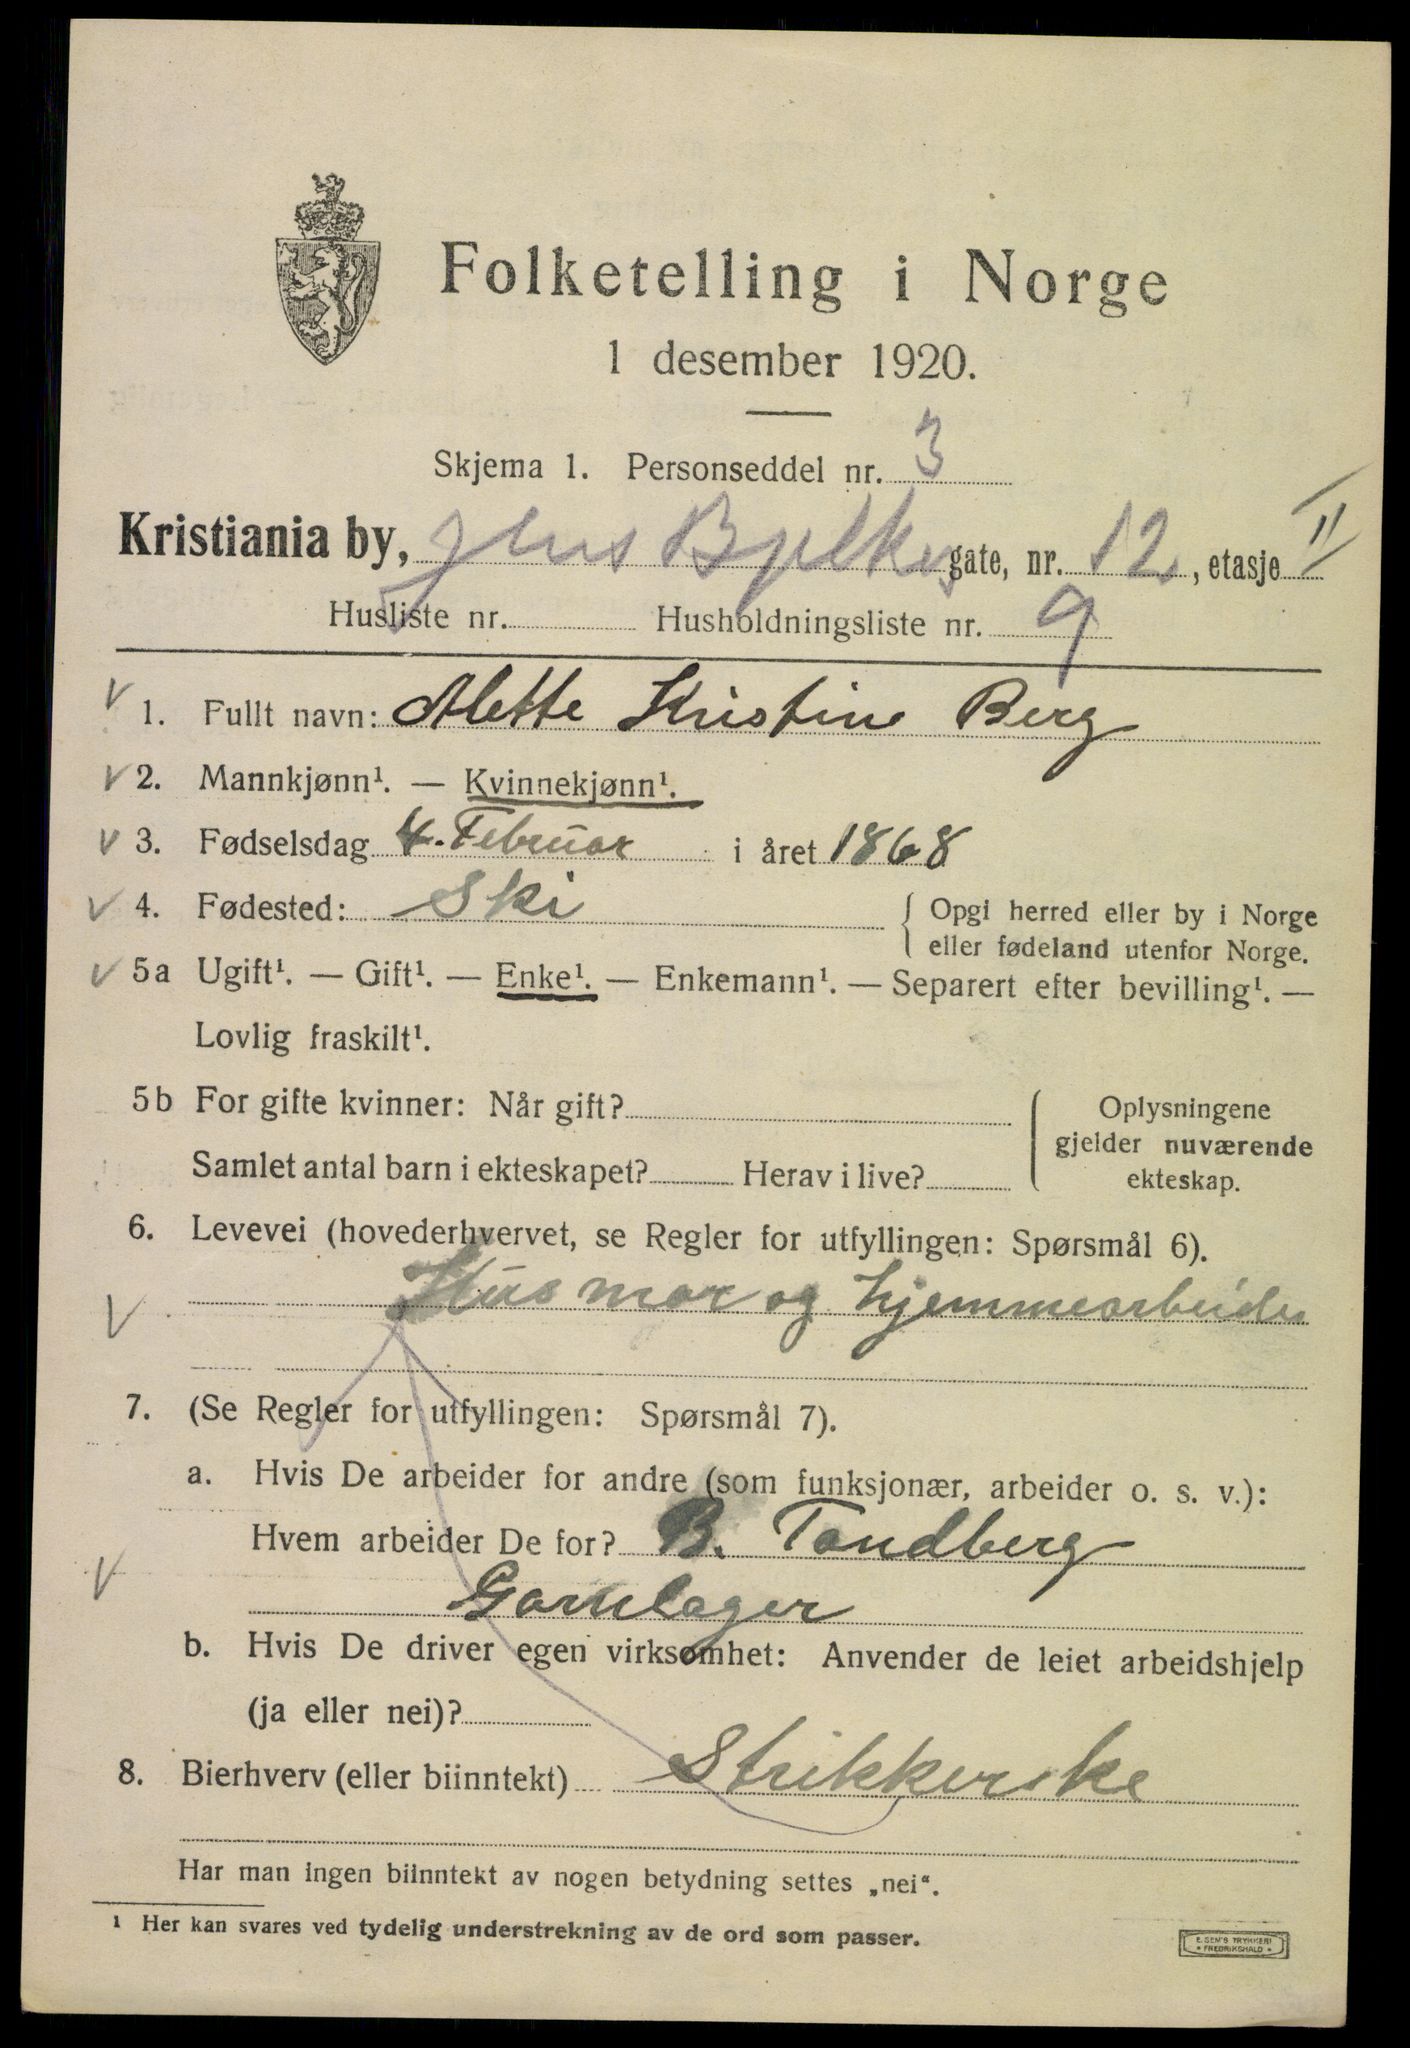 Folketelling i Norge
1 desember 1920.
Skjema 1. Personseddel nr. 3
Kristiania by, Jens Bjelkes gate, nr. 12, etasje II
Husliste nr. Husholdningsliste nr. 9
1. Fullt navn: Alette Kristine Berg
2. Mannkjønn¹. — Kvinnekjønn¹.
3. Fødselsdag 4. Februar i året 1868
4. Fødested: Ski { Opgi herred eller by i Norge
eller fødeland utenfor Norge.
5a Ugift¹. — Gift¹. — Enke¹. — Enkemann¹. — Separert efter bevilling¹. —
Lovlig fraskilt¹.
5b For gifte kvinner: Når gift? { Oplysningene
gjelder nuværende
Samlet antal barn i ekteskapet? Herav i live? ekteskap.
6. Levevei (hovederhvervet, se Regler for utfyllingen: Spørsmål 6).
Husmor og hjemmearbeider
7. (Se Regler for utfyllingen: Spørsmål 7).
a. Hvis De arbeider for andre (som funksjonær, arbeider o. s. v.):
Hvem arbeider De for? B. Tandberg
Garnlager
b. Hvis De driver egen virksomhet: Anvender de leiet arbeidshjelp
(ja eller nei)?
8. Bierhverv (eller biinntekt) Strikkerske
Har man ingen biinntekt av nogen betydning settes „nei“.
¹ Her kan svares ved tydelig understrekning av de ord som passer.
E. SEM'S TRYKKERI
* FREDRIKSHALD *